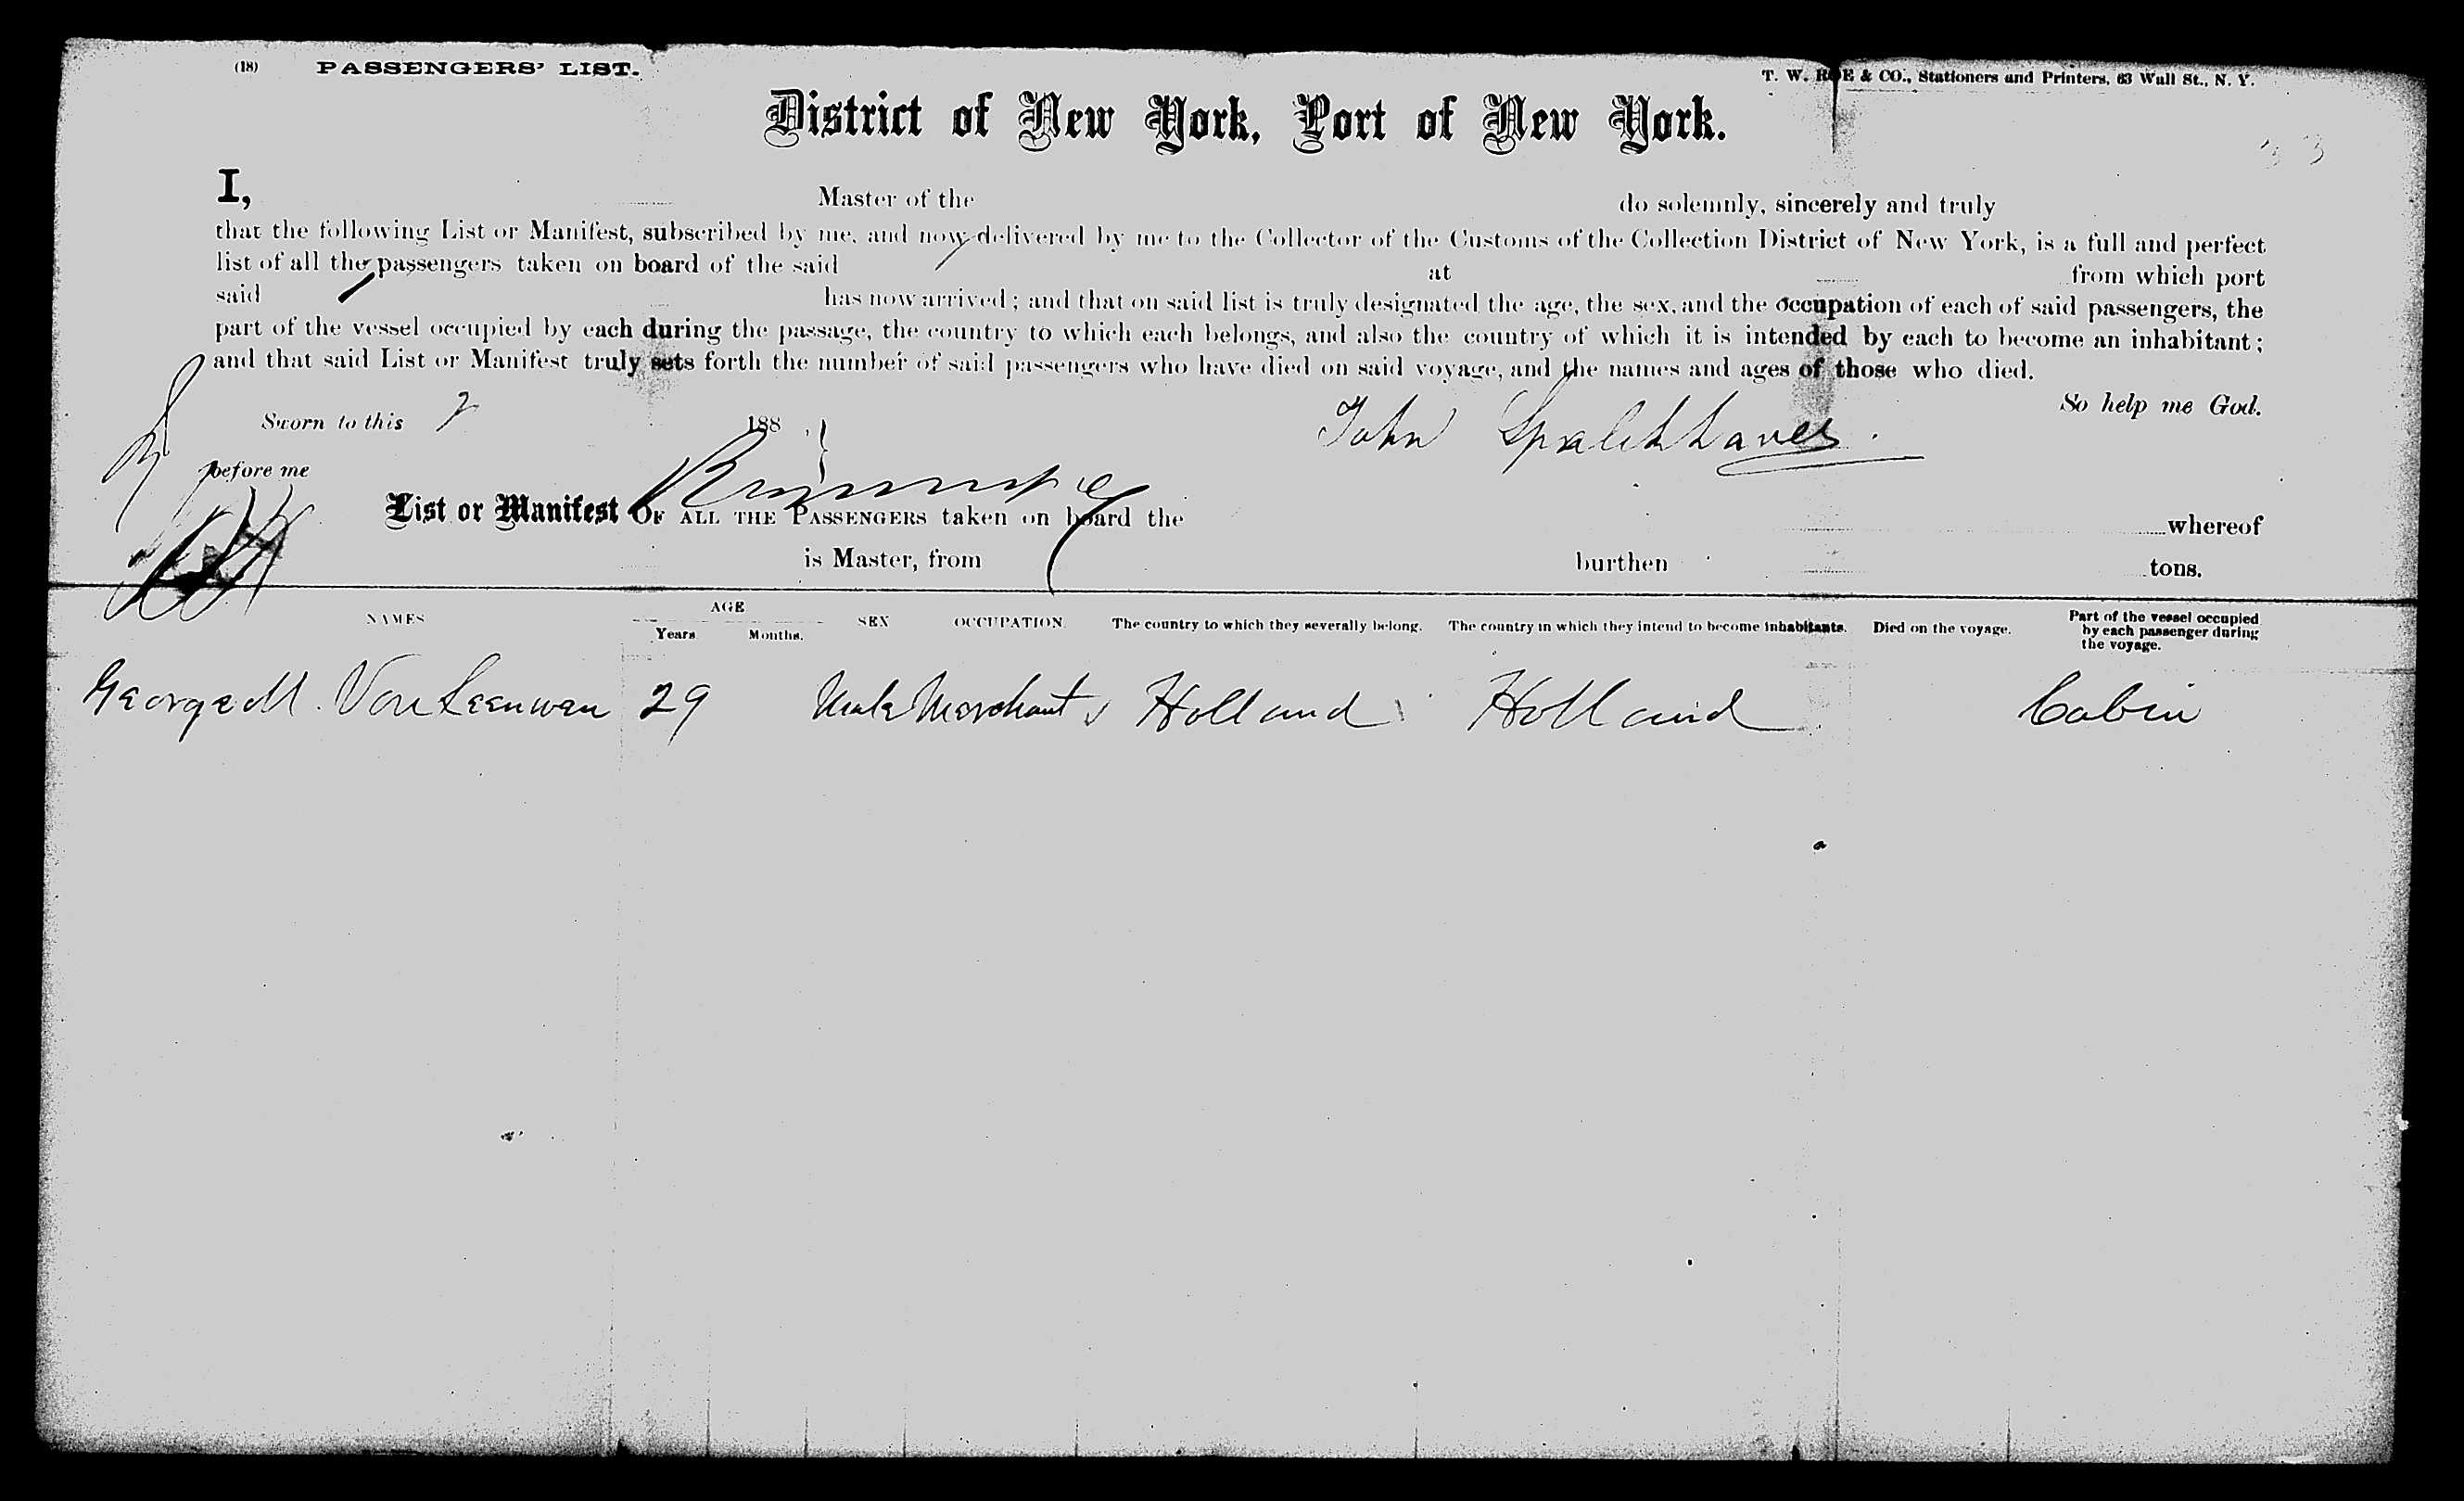 (18) PASSENGERS' LIST.
T. W. ROE & CO., Stationers and Printers, 63 Wall St., N. Y.
District of New York, Port of New York.
I, Master of the do solemnly, sincerely and truly
that the following List or Manifest, subscribed by me, and now delivered by me to the Collector of the Customs of the Collection District of New York, is a full and perfect
list of all the passengers taken on board of the said at from which port
said has now arrived; and that on said list is truly designated the age, the sex, and the occupation of each of said passengers, the
part of the vessel occupied by each during the passage, the country to which each belongs, and also the country of which it is intended by each to become an inhabitant;
and that said List or Manifest truly sets forth the number of said passengers who have died on said voyage, and the names and ages of those who died.
So help me God.
Sworn to this 188
John
before me
List or Manifest OF ALL THE PASSENGERS taken on board the whereof
is Master, from burthen tons.
NAMES AGE Years Months. SEX OCCUPATION. The country to which they severally belong. The country in which they intend to become inhabitants. Died on the voyage. Part of the vessel occupied by each passenger during the voyage.
George M. Von Leenwen 29 Male Merchant Holland Holland Cabin